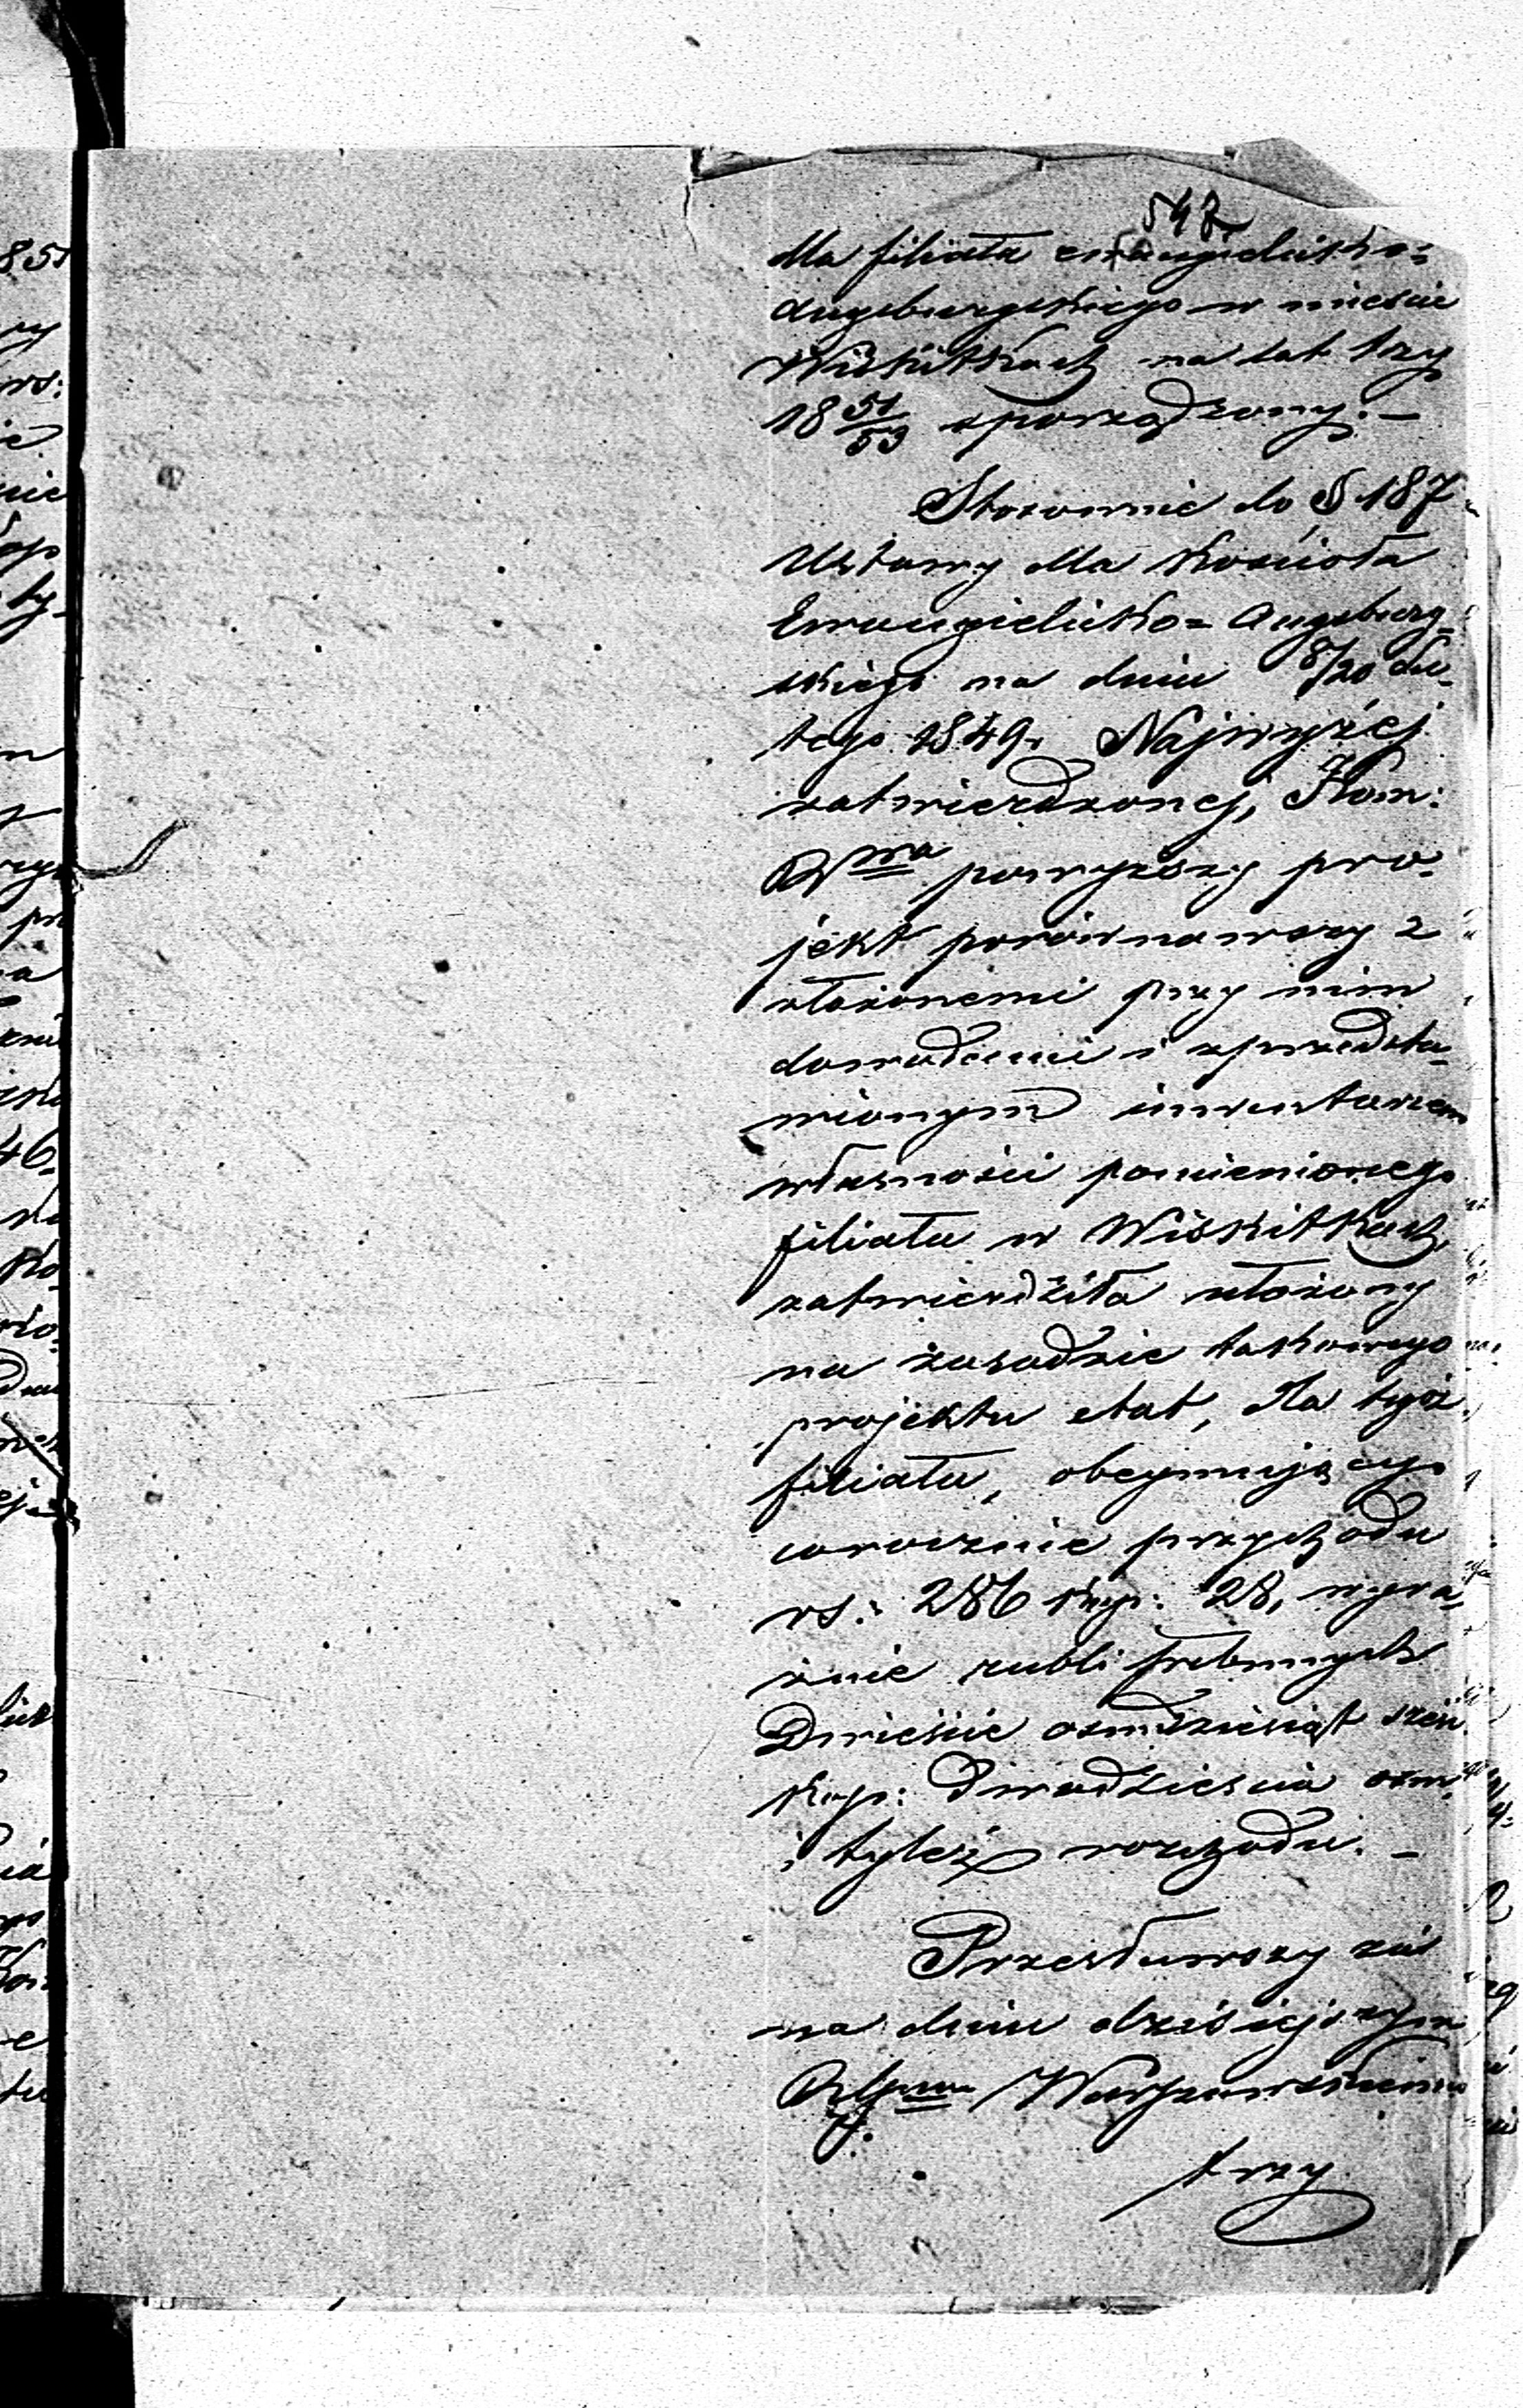 547
dla filiału ewangielicko=
augsburgskiego w mieście
Wiskitkach na lat trzy
18 51/53 sporządzony. –
Stosownie do § 187
Ustawy dla Kościoła
Ewangielicko=Augsburg-
skiego na dniu 8/20 Lu-
tego 1849. Najwyżej
zatwierdzonej, Kom:
powyższy pro-
jekt porównawszy z
złożonemi przy nim
dowodami i z przedsta-
wionym inwentarzem
własności pomienionego
filiału w Wiskitkach,
zatwierdziła ułożony
na zasadzie takowego
projektu etat, dla tegoż
filiału, obejmujący
corocznie przychodu
rs: 286 kop: 28, wyra-
źnie rubli srebrnych
Dwieście ośmdziesiąt sześć
kop: Dwadzieścia ośm
i tyleż rozchodu. –
Przesławszy zaś
na dniu dzisiejszym
przy